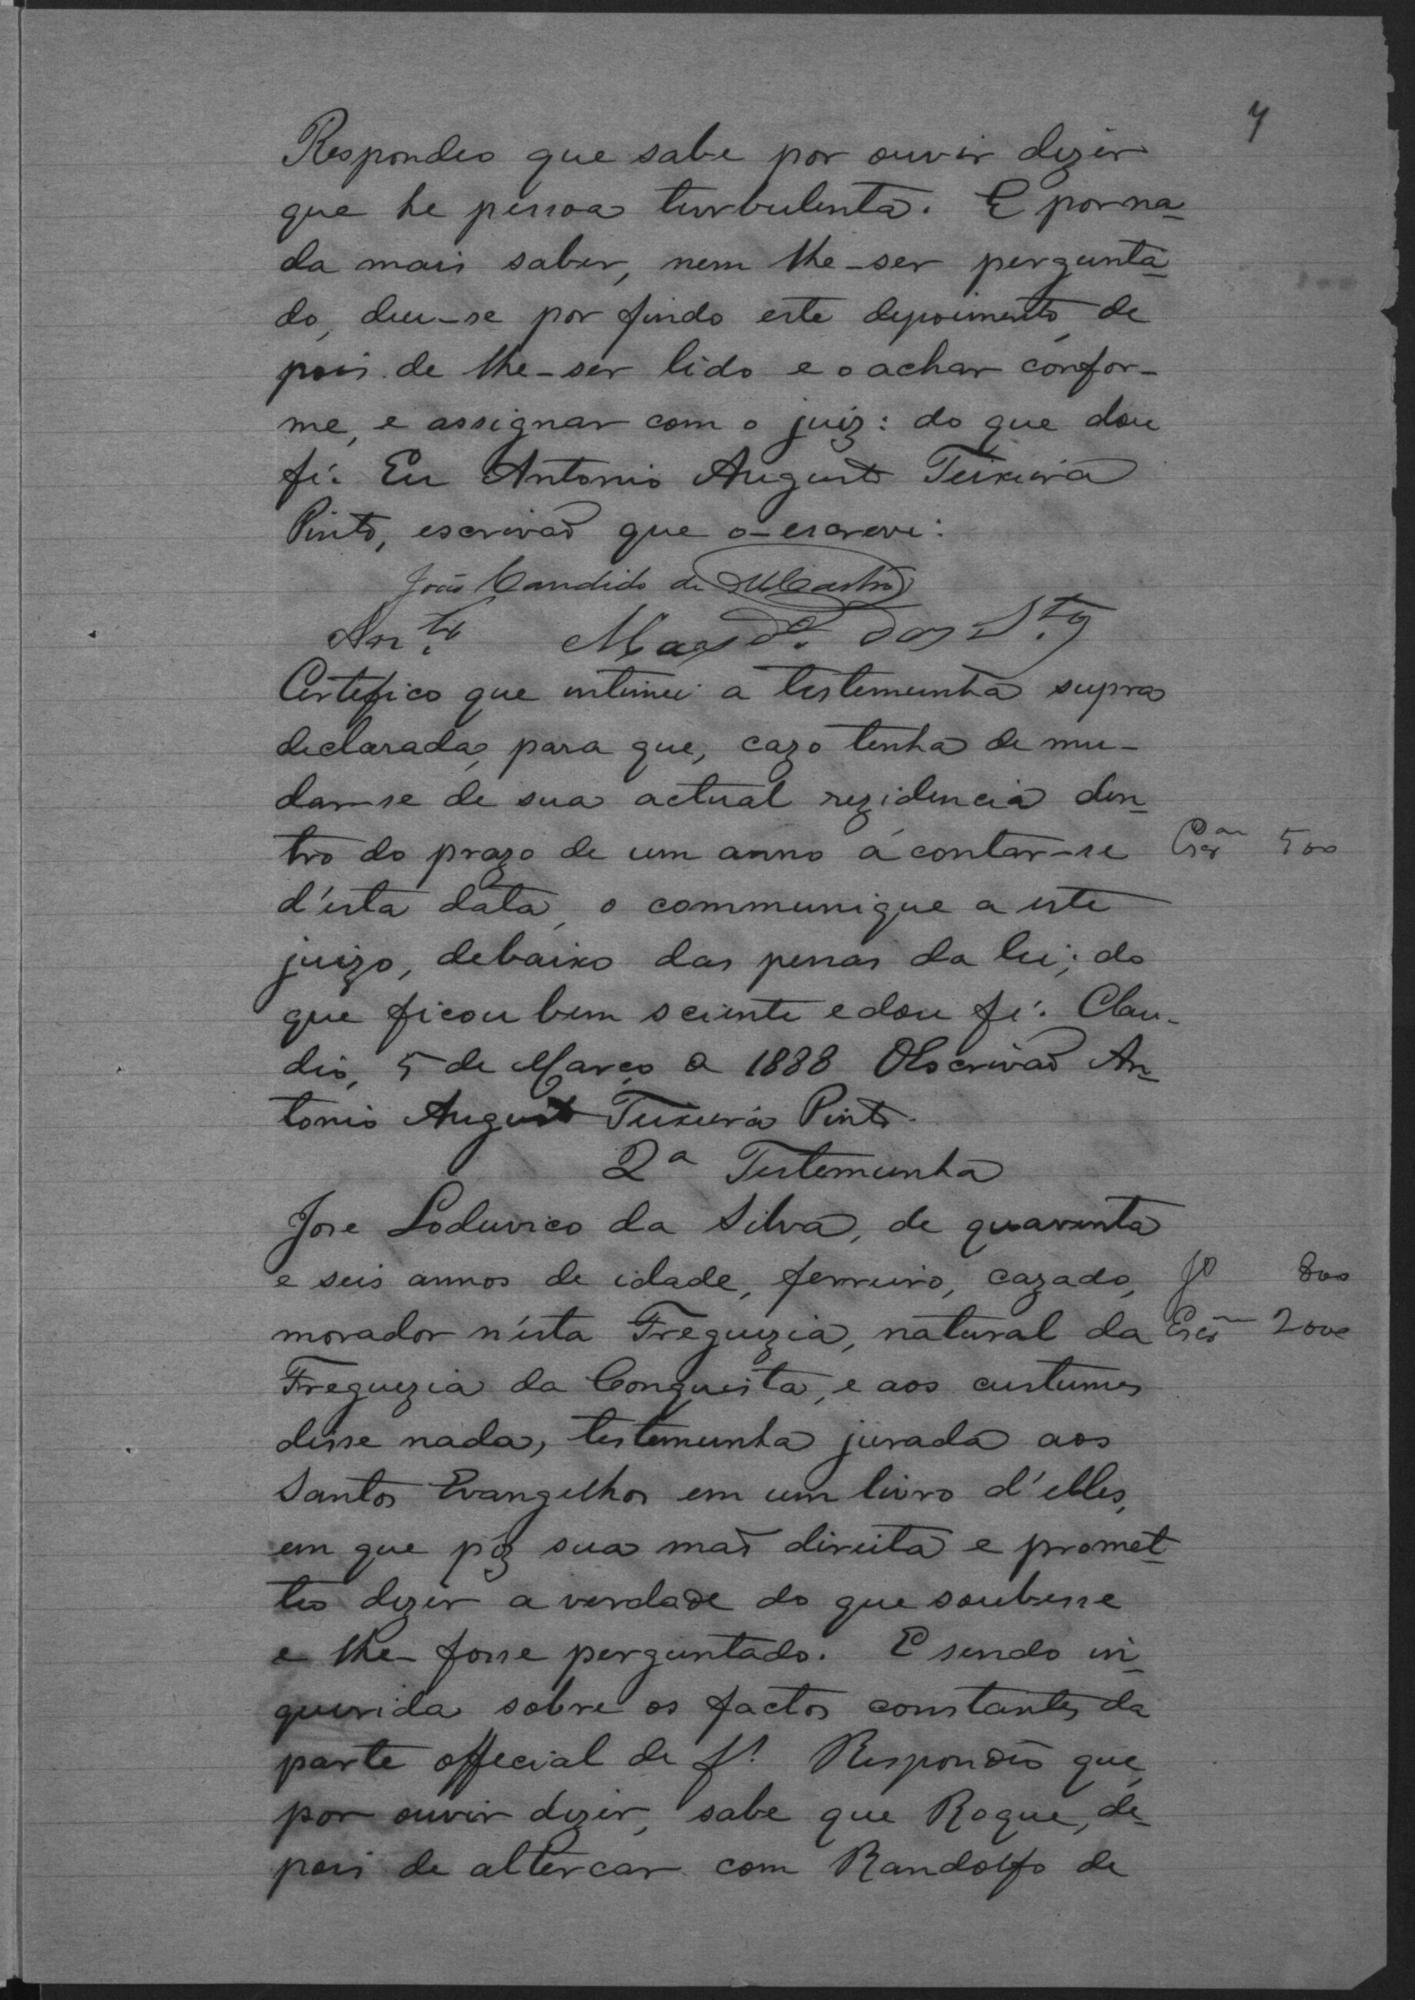 7
Respondeo que sabe por ouvir dizer
que he pessoa turbulenta. E por na-
da mais saber, nem lhe-ser pergunta-
do, deu-se por findo este depoimento, de
pois de lhe-ser lido e o achar confor-
me, e assignar com o juiz: do que dou
fé. Eu Antonio Augusto Teixeira
Pinto, escrivaõ que o-escrevi:
João Candido de MCastro
Anto. Macdo. dos Stos
Certefico que intimei a testemunha supra
declarada, para que, cazo tenha de mu-
dar-se de sua actual rezidencia den-
tro do prazo de um anno á contar-se
Escram 500
d'esta data, o communique a este
juizo, debaixo das penas da lei; do
que ficou bem sciente e dou fé. Clau-
dio, 5 de Março de 1888 O Escrivaõ An-
tonio Augusto Teixeira Pinto.
2a Testemunha
Jose Loduvico da Silva, de quarenta
e seis annos de idade, ferreiro, cazado,
Jo 800
morador n'esta Freguezia, natural da
Escram 2000
Freguezia da Conquista, e aos custumes
disse nada, testemunha jurada aos
Santos Evangelhos em um livro d'elles,
em que póz sua maõ direita e promet-
teo dizer a verdade do que soubesse
e lhe-fosse perguntado. E sendo in-
querida sobre os factos constantes da
parte offecial de fs. Respondeo que,
por ouvir dizer, sabe que Roque, de-
pois de altercar com Randolfo de